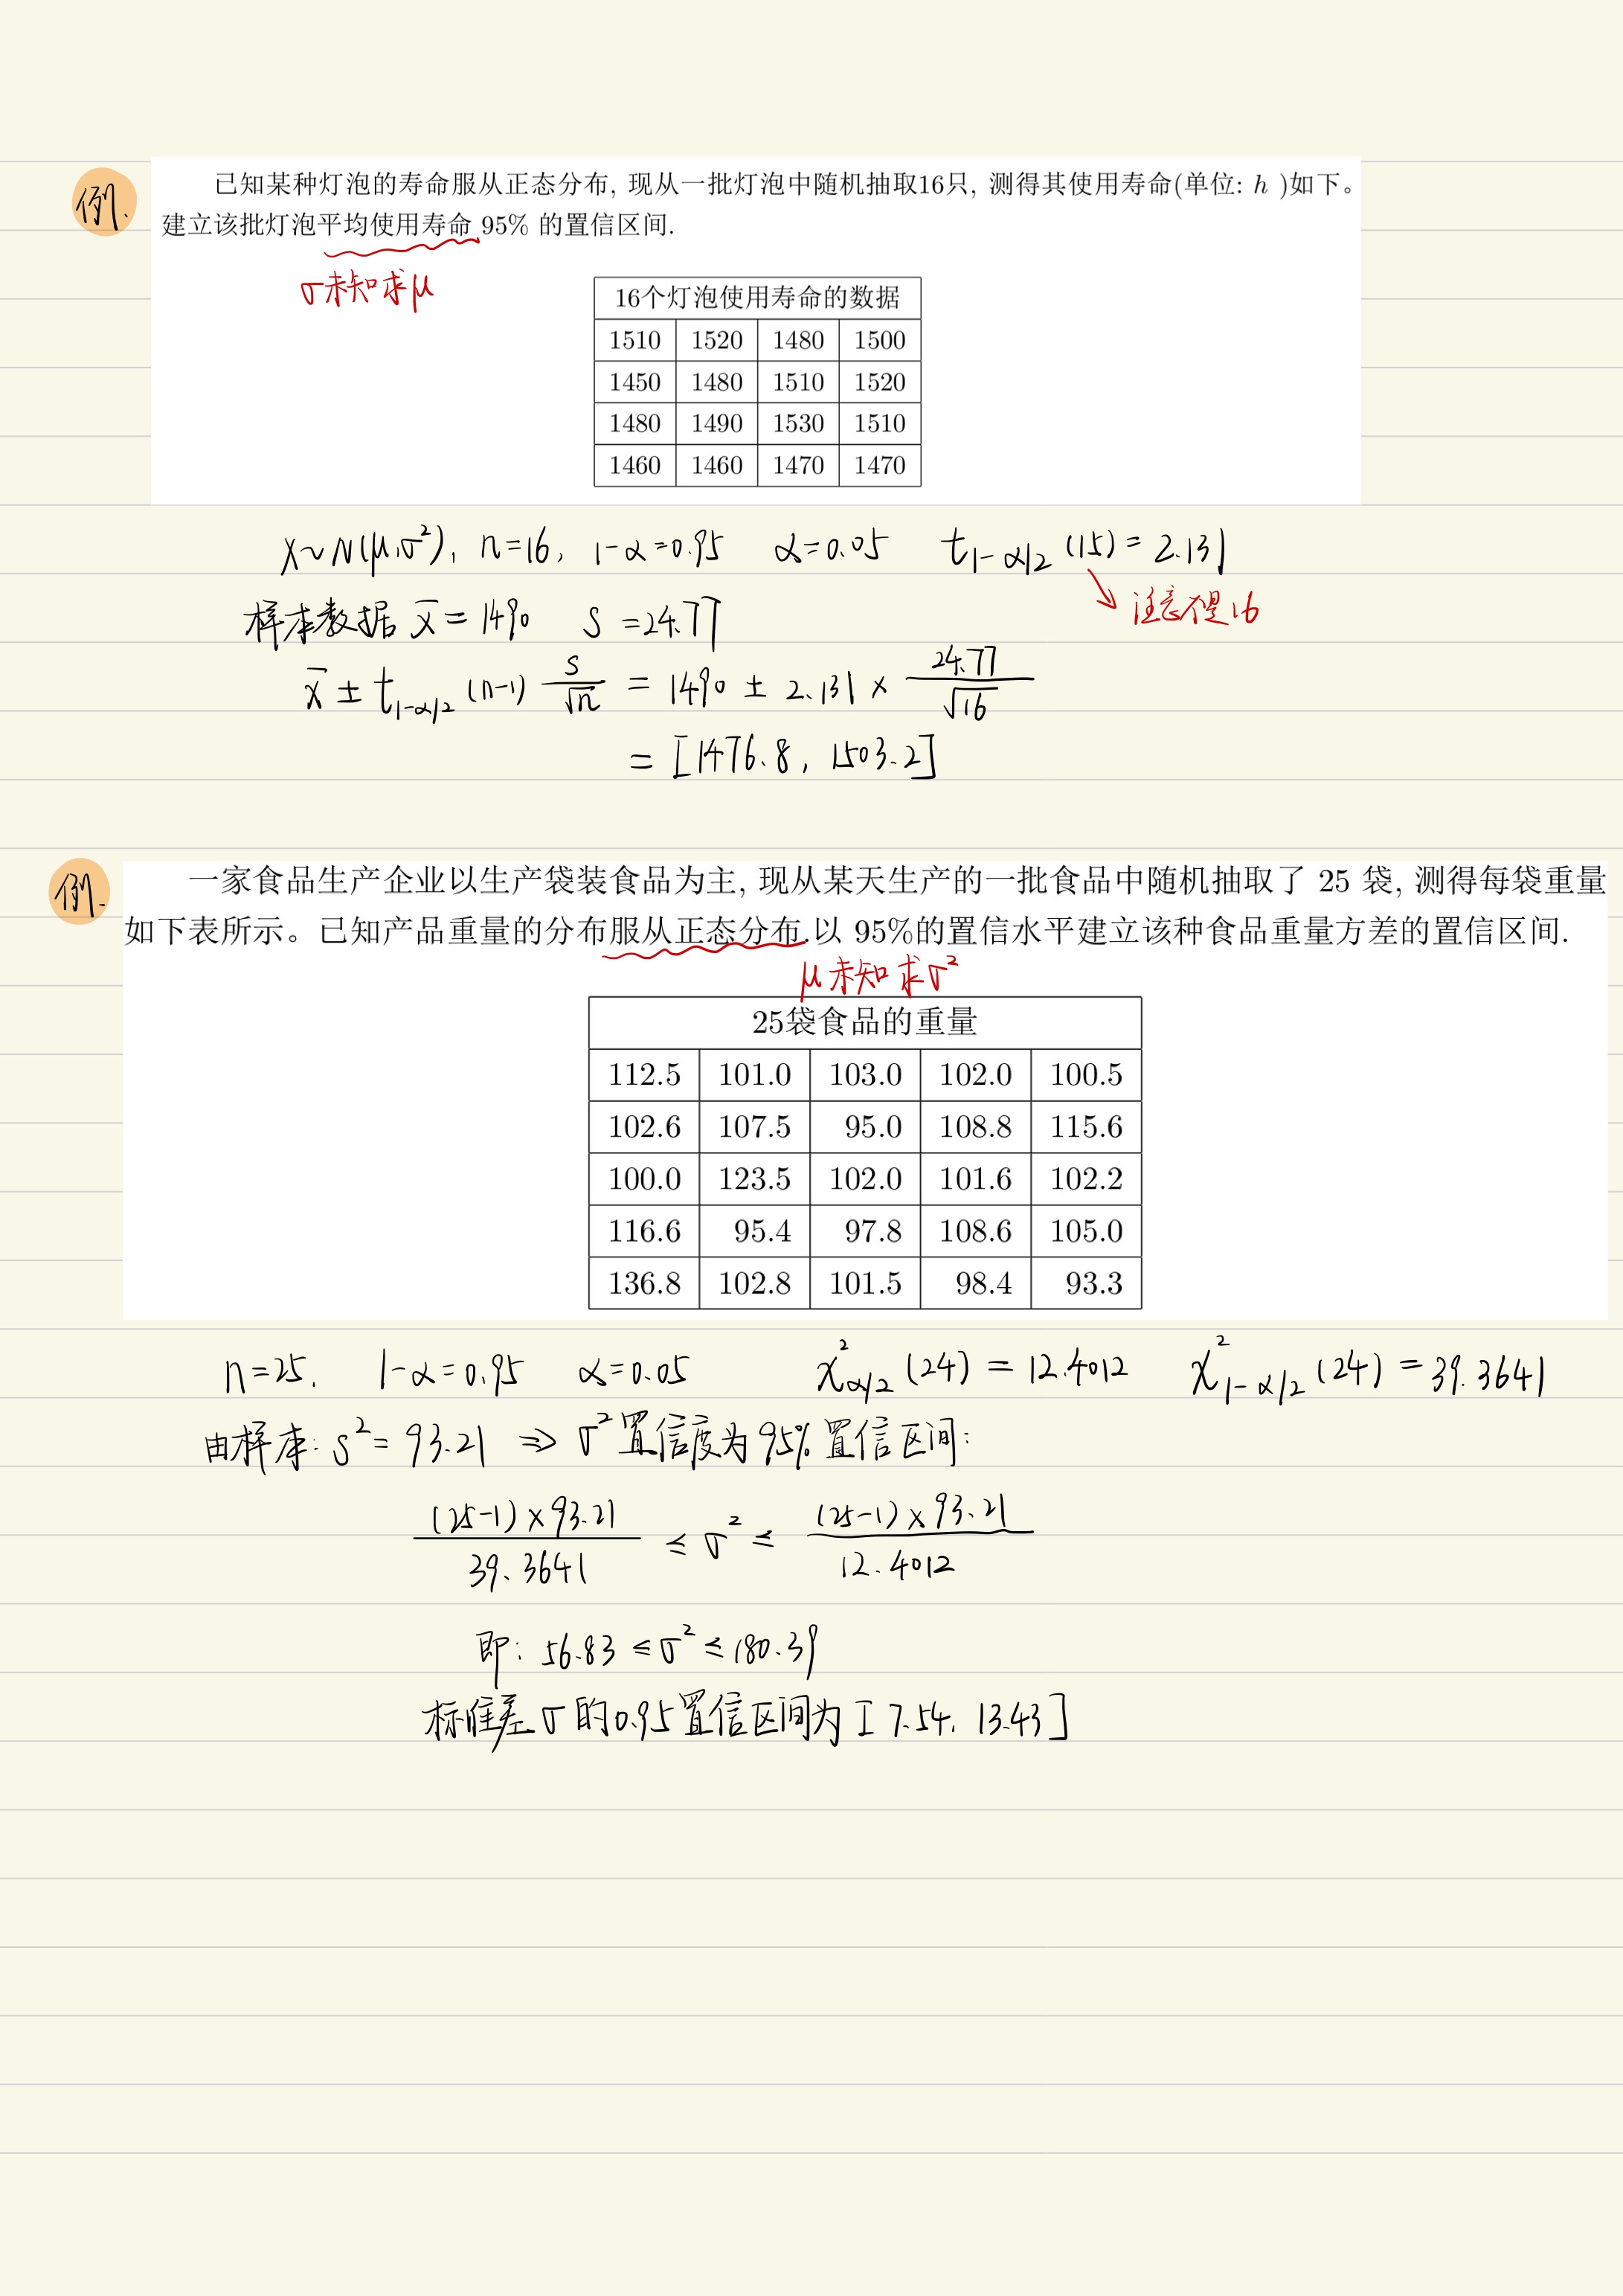 例.
已知某种灯泡的寿命服从正态分布, 现从一批灯泡中随机抽取16只, 测得其使用寿命(单位: h )如下。
建立该批灯泡平均使用寿命 95% 的置信区间.
σ未知求μ
16个灯泡使用寿命的数据
1510 1520 1480 1500
1450 1480 1510 1520
1480 1490 1530 1510
1460 1460 1470 1470
X~N(μ,σ²), n=16, 1-α=0.95 α=0.05 t₁₋α/₂ (15) = 2.131
注意不是16
样本数据 x̄ = 1490 s = 24.77
x̄ ± t₁₋α/₂ (n-1) s/√n = 1490 ± 2.131 × 24.77/√16
= [1476.8, 1503.2]
例.
一家食品生产企业以生产袋装食品为主, 现从某天生产的一批食品中随机抽取了 25 袋, 测得每袋重量
如下表所示。已知产品重量的分布服从正态分布.以 95%的置信水平建立该种食品重量方差的置信区间.
μ未知求σ²
25袋食品的重量
112.5 101.0 103.0 102.0 100.5
102.6 107.5 95.0 108.8 115.6
100.0 123.5 102.0 101.6 102.2
116.6 95.4 97.8 108.6 105.0
136.8 102.8 101.5 98.4 93.3
n=25. 1-α=0.95 α=0.05 χ²α/₂ (24) = 12.4012 χ²₁₋α/₂ (24) = 39.3641
由样本: s² = 93.21 ⇒ σ²置信度为95%置信区间:
(25-1)×93.21/39.3641 ≤ σ² ≤ (25-1)×93.21/12.4012
即: 56.83 ≤ σ² ≤ 180.39
标准差σ的0.95置信区间为[7.54, 13.43]